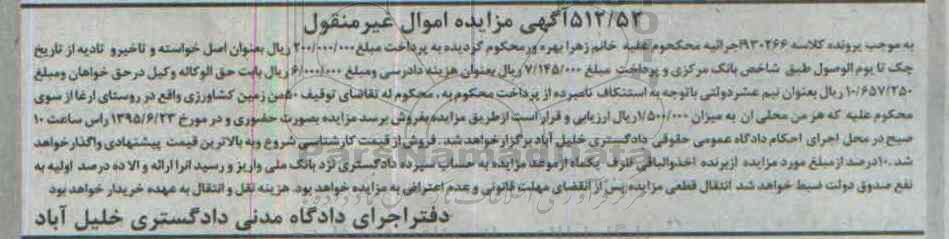 ۵۱۲/۵۲آگهی مزایده اموال غیرمنقول
به موجب پرونده کلاسه ۹۳۰۲۶۶اجرائیه محکحوم علیه خانم زهرا بهره ورمحکوم گردیده به پرداخت مبلغ ۲۰۰/۰۰۰/۰۰۰ ریال بعنوان اصل خواسته و تاخیرو تادیه از تاریخ
چک تا یوم الوصول طبق شاخص بانک مرکزی و پرداخت مبلغ ۷/۱۴۵/۰۰۰ ریال بعنوان هزینه دادرسی ومبلغ ۶/۰۰۰/۰۰۰ ریال بابت حق الوکاله وکیل درحق خواهان ومبلغ
۱۰/۶۵۷/۲۵۰ ریال بعنوان نیم عشردولتی باتوجه به استنکاف نامبرده از پرداخت محکوم به ، محکوم له تقاضای توقیف ۵۰من زمین کشاورزی واقع در روستای ارغا از سوی
محکوم علیه که هر من محلی ان به میزان ۱/۵۰۰/۰۰۰ریال ارزیابی و قرار است ازطریق مزایده بفروش برسد مزایده بصورت حضوری و در مورخ ۱۳۹۵/۶/۲۳ راس ساعت ۱۰
صبح در محل اجرای احکام دادگاه عمومی حقوقی دادگستری خلیل آباد برگزارخواهد شد . فروش از قیمت کارشناسی شروع وبه بالاترین قیمت پیشنهادی واگذارخواهد
شد .۱۰درصد ازمبلغ مورد مزایده ازبرنده اخذوالباقی ظرف یکماه ازموعد مزایده به حساب سپرده دادگستری نزد بانک ملی واریز و رسید انرا ارائه و الا ده درصد اولیه به
نفع صندوق دولت ضبط خواهد شد انتقال قطعی مزایده پس از انقضای مهلت قانونی و عدم اعتراض به مزایده خواهد بود. هزینه نقل و انتقال به عهده خریدار خواهد بود
دفتراجرای دادگاه مدنی دادگستری خلیل آباد